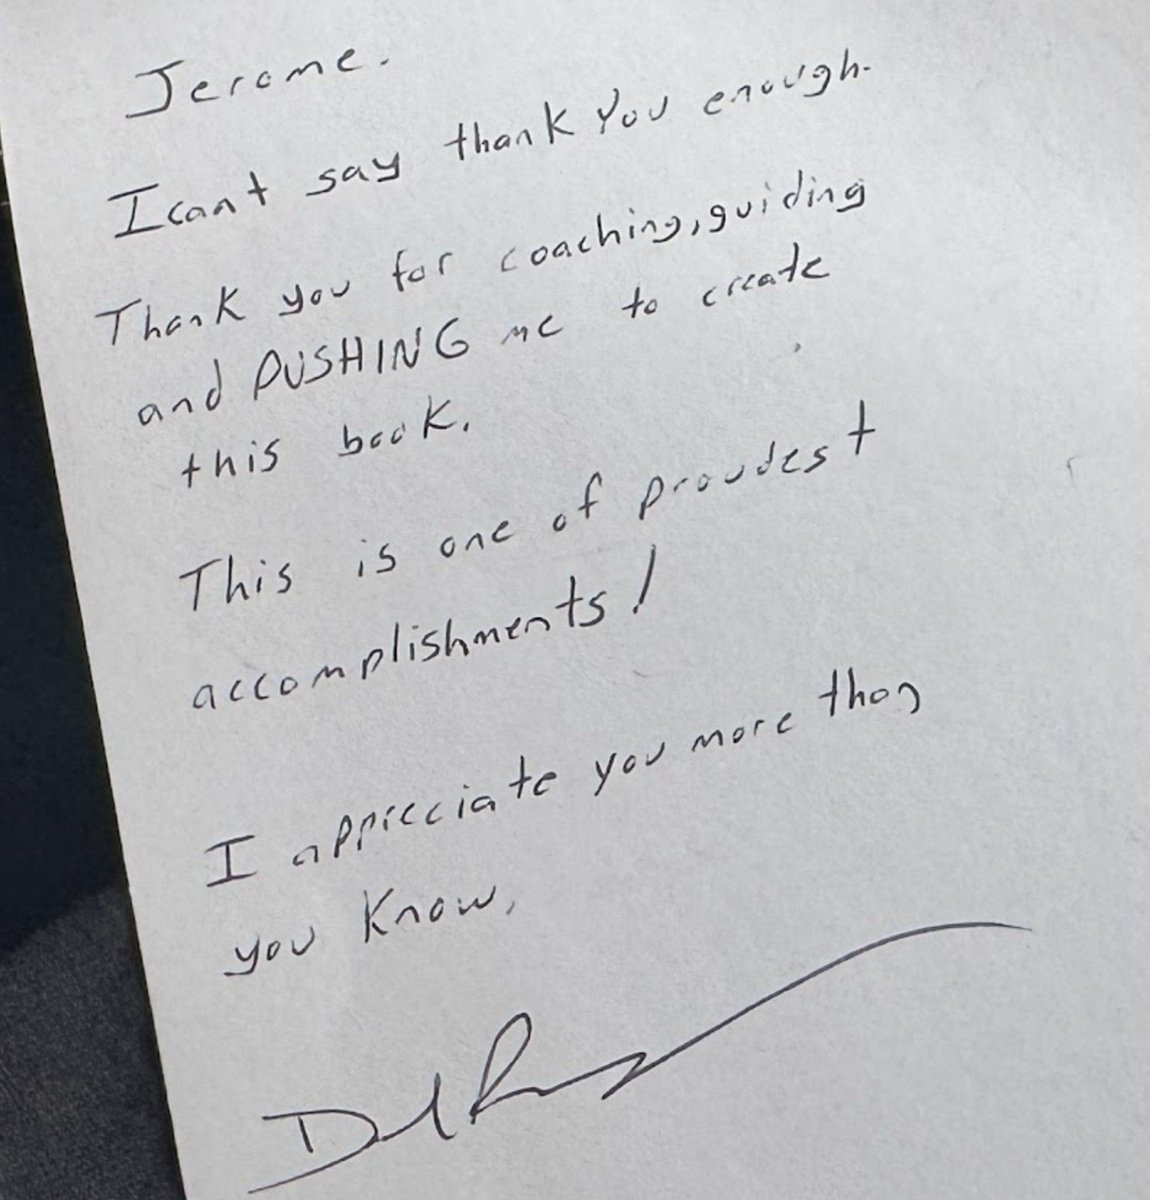 Jerome.
I can't say thank you enough.
Thank you for coaching, guiding
and PUSHING me to create
this book.
This is one of proudest
accomplishments!
I appreciate you more than
you know,